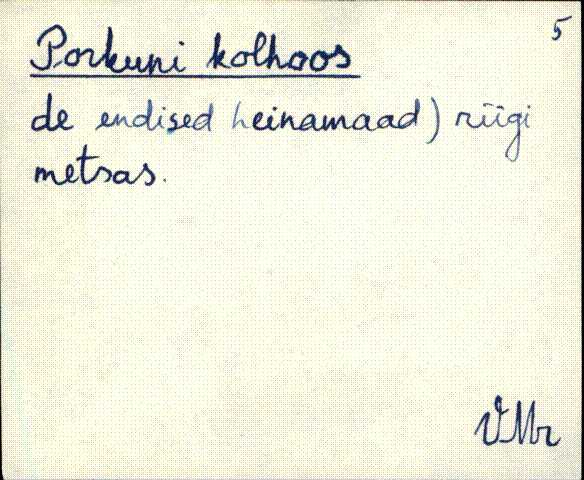 5
Porkuni kolhoos
de endised heinamaad) riigi
metsas.
VMr